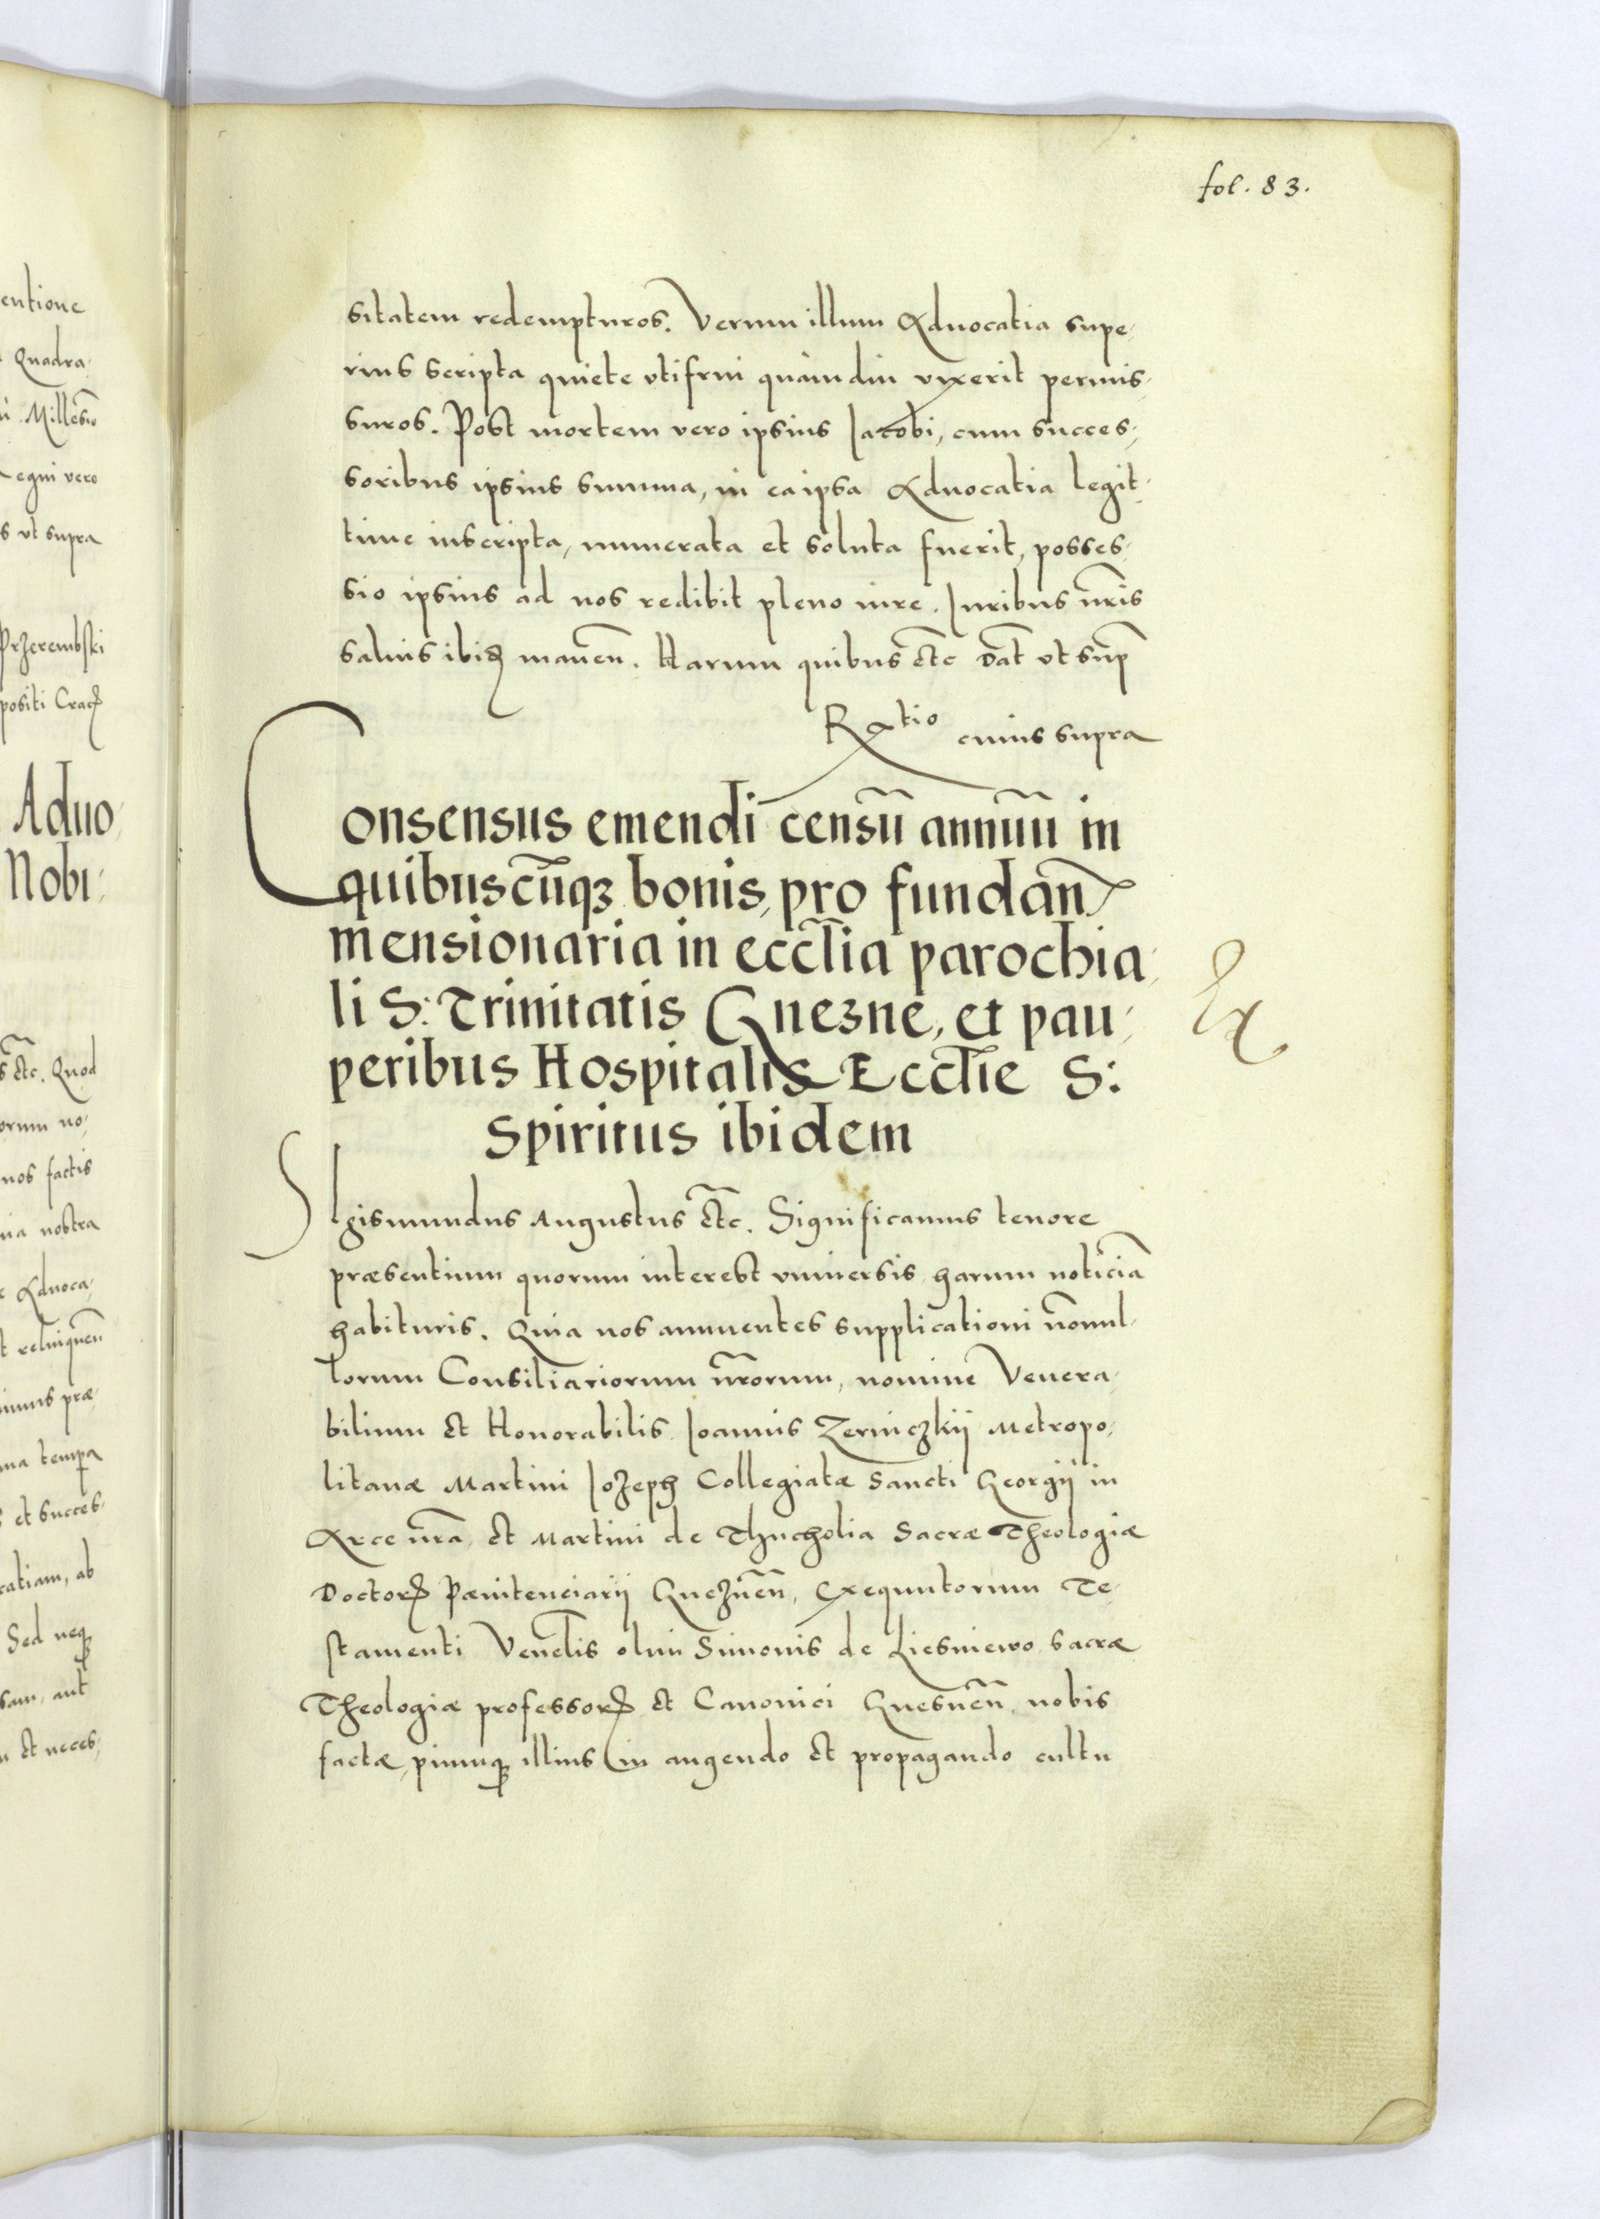 entione
Quadra-
Millesio
Regni vero
s vt supra
Przerembski
positi Crac
Aduo,
Nobi:
s etc. Quod
orum no,
nos factis
nostra
Aduoca,
t relinquen̄
præ,
ma tempa
et succes-
catiam, ab
Sed neq
sam, aut
et neces,
fol. 83.
sitatem redempturos. Verum illum Aduocatia supe,
rius scripta quiete vtifrui quàmdiu vixerit permis,
suros. Post mortem vero ipsius Jacobi, cum succes,
soribus ipsius summa, in ea ipsa Aduocatia legit,
time inscripta, numerata et soluta fuerit, posses,
sio ipsius ad nos redibit pleno iure. Juribus nr̄is
saluis ibiđ manen̄. Harum quibus etc̄ Dat̄ vt sup̄
Rᵃtio cuius supra
Consensus emendi censū annuū in
quibuscūqꝫ bonis, pro fundan̄
mensionaria in eccl̄ia parochia,
li S: Trinitatis Gnezne, et pau,
peribus Hospitalis Eccl̄ie S:
Spiritus ibidem
SIgismundus Augustus etc̄. Significamus tenore
præsentium quorum interest vniuersis harum noticiā
habituris. Quia nos annuentes supplicationi nōnul,
lorum Consiliariorum nr̄orum, nomine Venera,
bilium et Honorabilis Joannis Zerniczkij Metropo,
litanæ Martini Jozeph Collegiatæ Sancti Georgij in
Arce nr̄a et Martini de Thucholia Sacræ Theologiæ
Doctorꝝ Pænitenciarij Gnezn̄en̄, Exequutorum Te,
stamenti Venel̄is olim Simonis de Liesniewo sacræ
Theologiæ professorꝭ et Canonici Gnesnen̄ nobis
factæ, piumqꝫ illius in augendo et propagando cultu